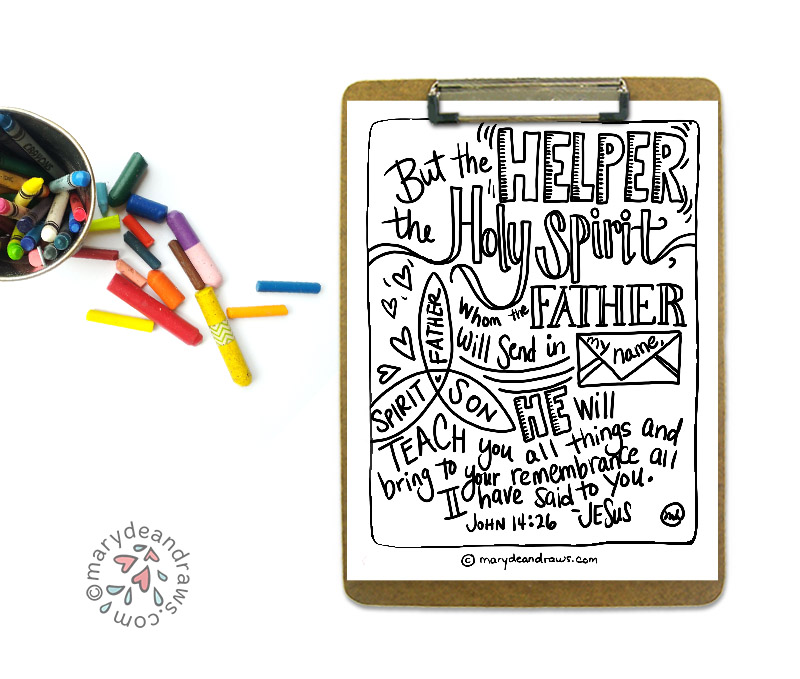 But the HELPER,
the Holy Spirit,
whom the FATHER
will send in my name,
FATHER
SPIRIT SON
HE will
TEACH you all things and
bring to your remembrance all
I have said to you.
JOHN 14:26 -JESUS
© marydeandraws.com
©marydeandraws.com